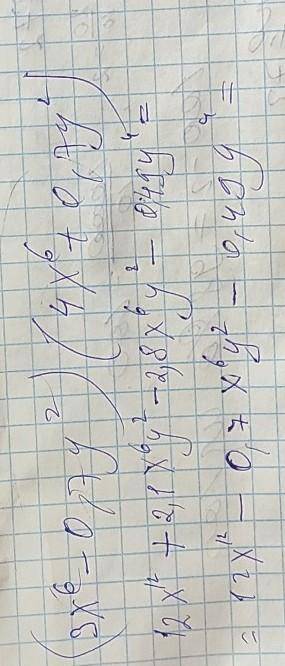 (3x⁶ - 0,7y²)(4x⁶ + 0,7y²)
12x¹² + 2,1x⁶y² - 2,8x⁶y² - 0,49y⁴ =
= 12x¹² - 0,7x⁶y² - 0,49y⁴ =